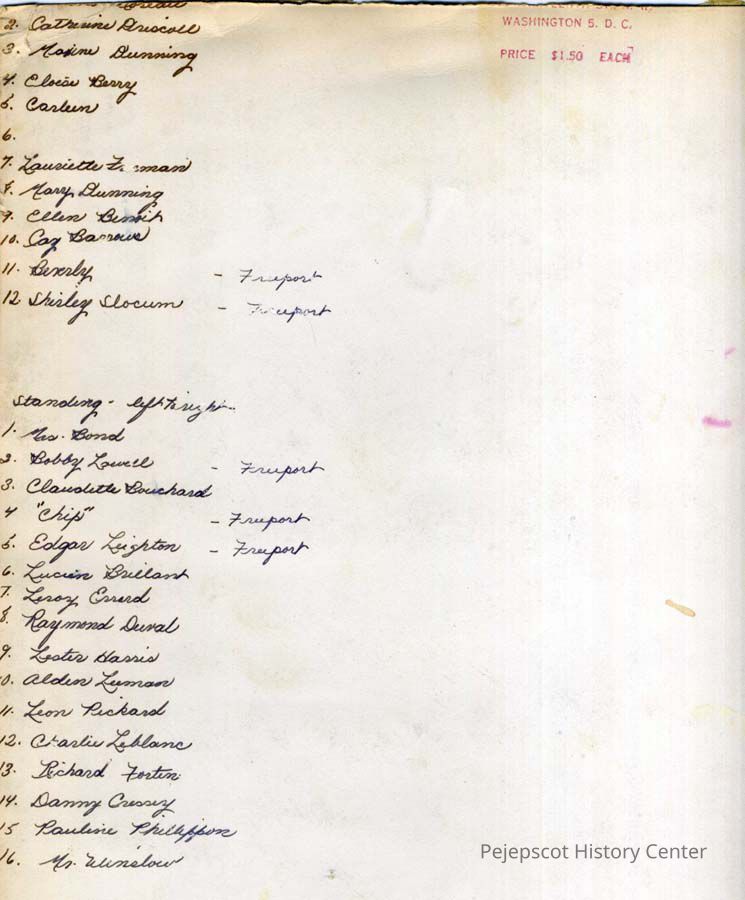 WASHINGTON 5. D. C.
PRICE $1.50 EACH
2. Catherine Driscoll
3. Maxine Dunning
4. Eloise Berry
5. Carleen
6.
7. Lauriette
8. Mary Dunning
9. Ellen Benoit
10. Gay Barrows
11. Beverly - Freeport
12. Shirley Slocum - Freeport
Standing - left to right -
1. Mrs. Bond
2. Bobby Lowell - Freeport
3. Claudette Bouchard
4 "Chip" - Freeport
5. Edgar Leighton - Freeport
6. Lucien Brillant
7. Leroy Errard
8. Raymond Duval
9. Lester Harris
10. Alden Leeman
11. Leon Rickard
12. Charlie Leblanc
13. Richard Fortin
14. Danny Cressey
15 Pauline Phillippon
16. Mr. Winslow
Pejepscot History Center